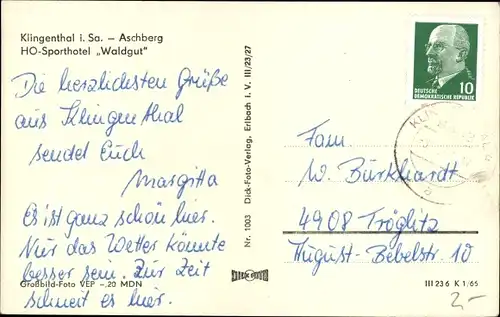 Klingenthal i. Sa. – Aschberg
HO-Sporthotel „Waldgut"
Die herzlichsten Grüße
aus Klingenthal
sendet Euch
Margitta
Es ist ganz schön hier.
Nur das Wetter könnte
besser sein. Zur Zeit
schneit es hier.
Großbild-Foto VEP –,20 MDN
Nr. 1003 Dick-Foto-Verlag, Erlbach i. V. III/23/27
DICK FOTO
10
DEUTSCHE
DEMOKRATISCHE REPUBLIK
Fam.
W. Burkhardt
4908 Tröglitz
August-Bebelstr. 10
III 236 K 1/65
2,-